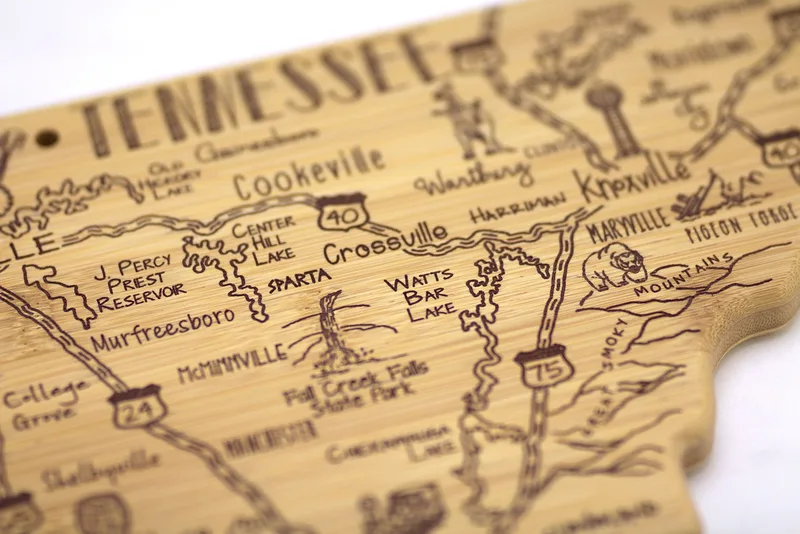 TENNESSEE
Gainesboro
OLD
HICKORY
LAKE
Cookeville
CLINTON
Wartburg
HARRIMAN
Knoxville
40
40
LLE
CENTER
HILL
LAKE
Crossville
MARYVILLE
PIGEON FORGE
J. PERCY
PRIEST
RESERVOIR
SPARTA
WATTS
BAR
LAKE
GREAT SMOKY
MOUNTAINS
Murfreesboro
McMINNVILLE
Fall Creek Falls
State Park
75
75
College
Grove
24
MANCHESTER
CHICKAMAUGA
LAKE
Shelbyville